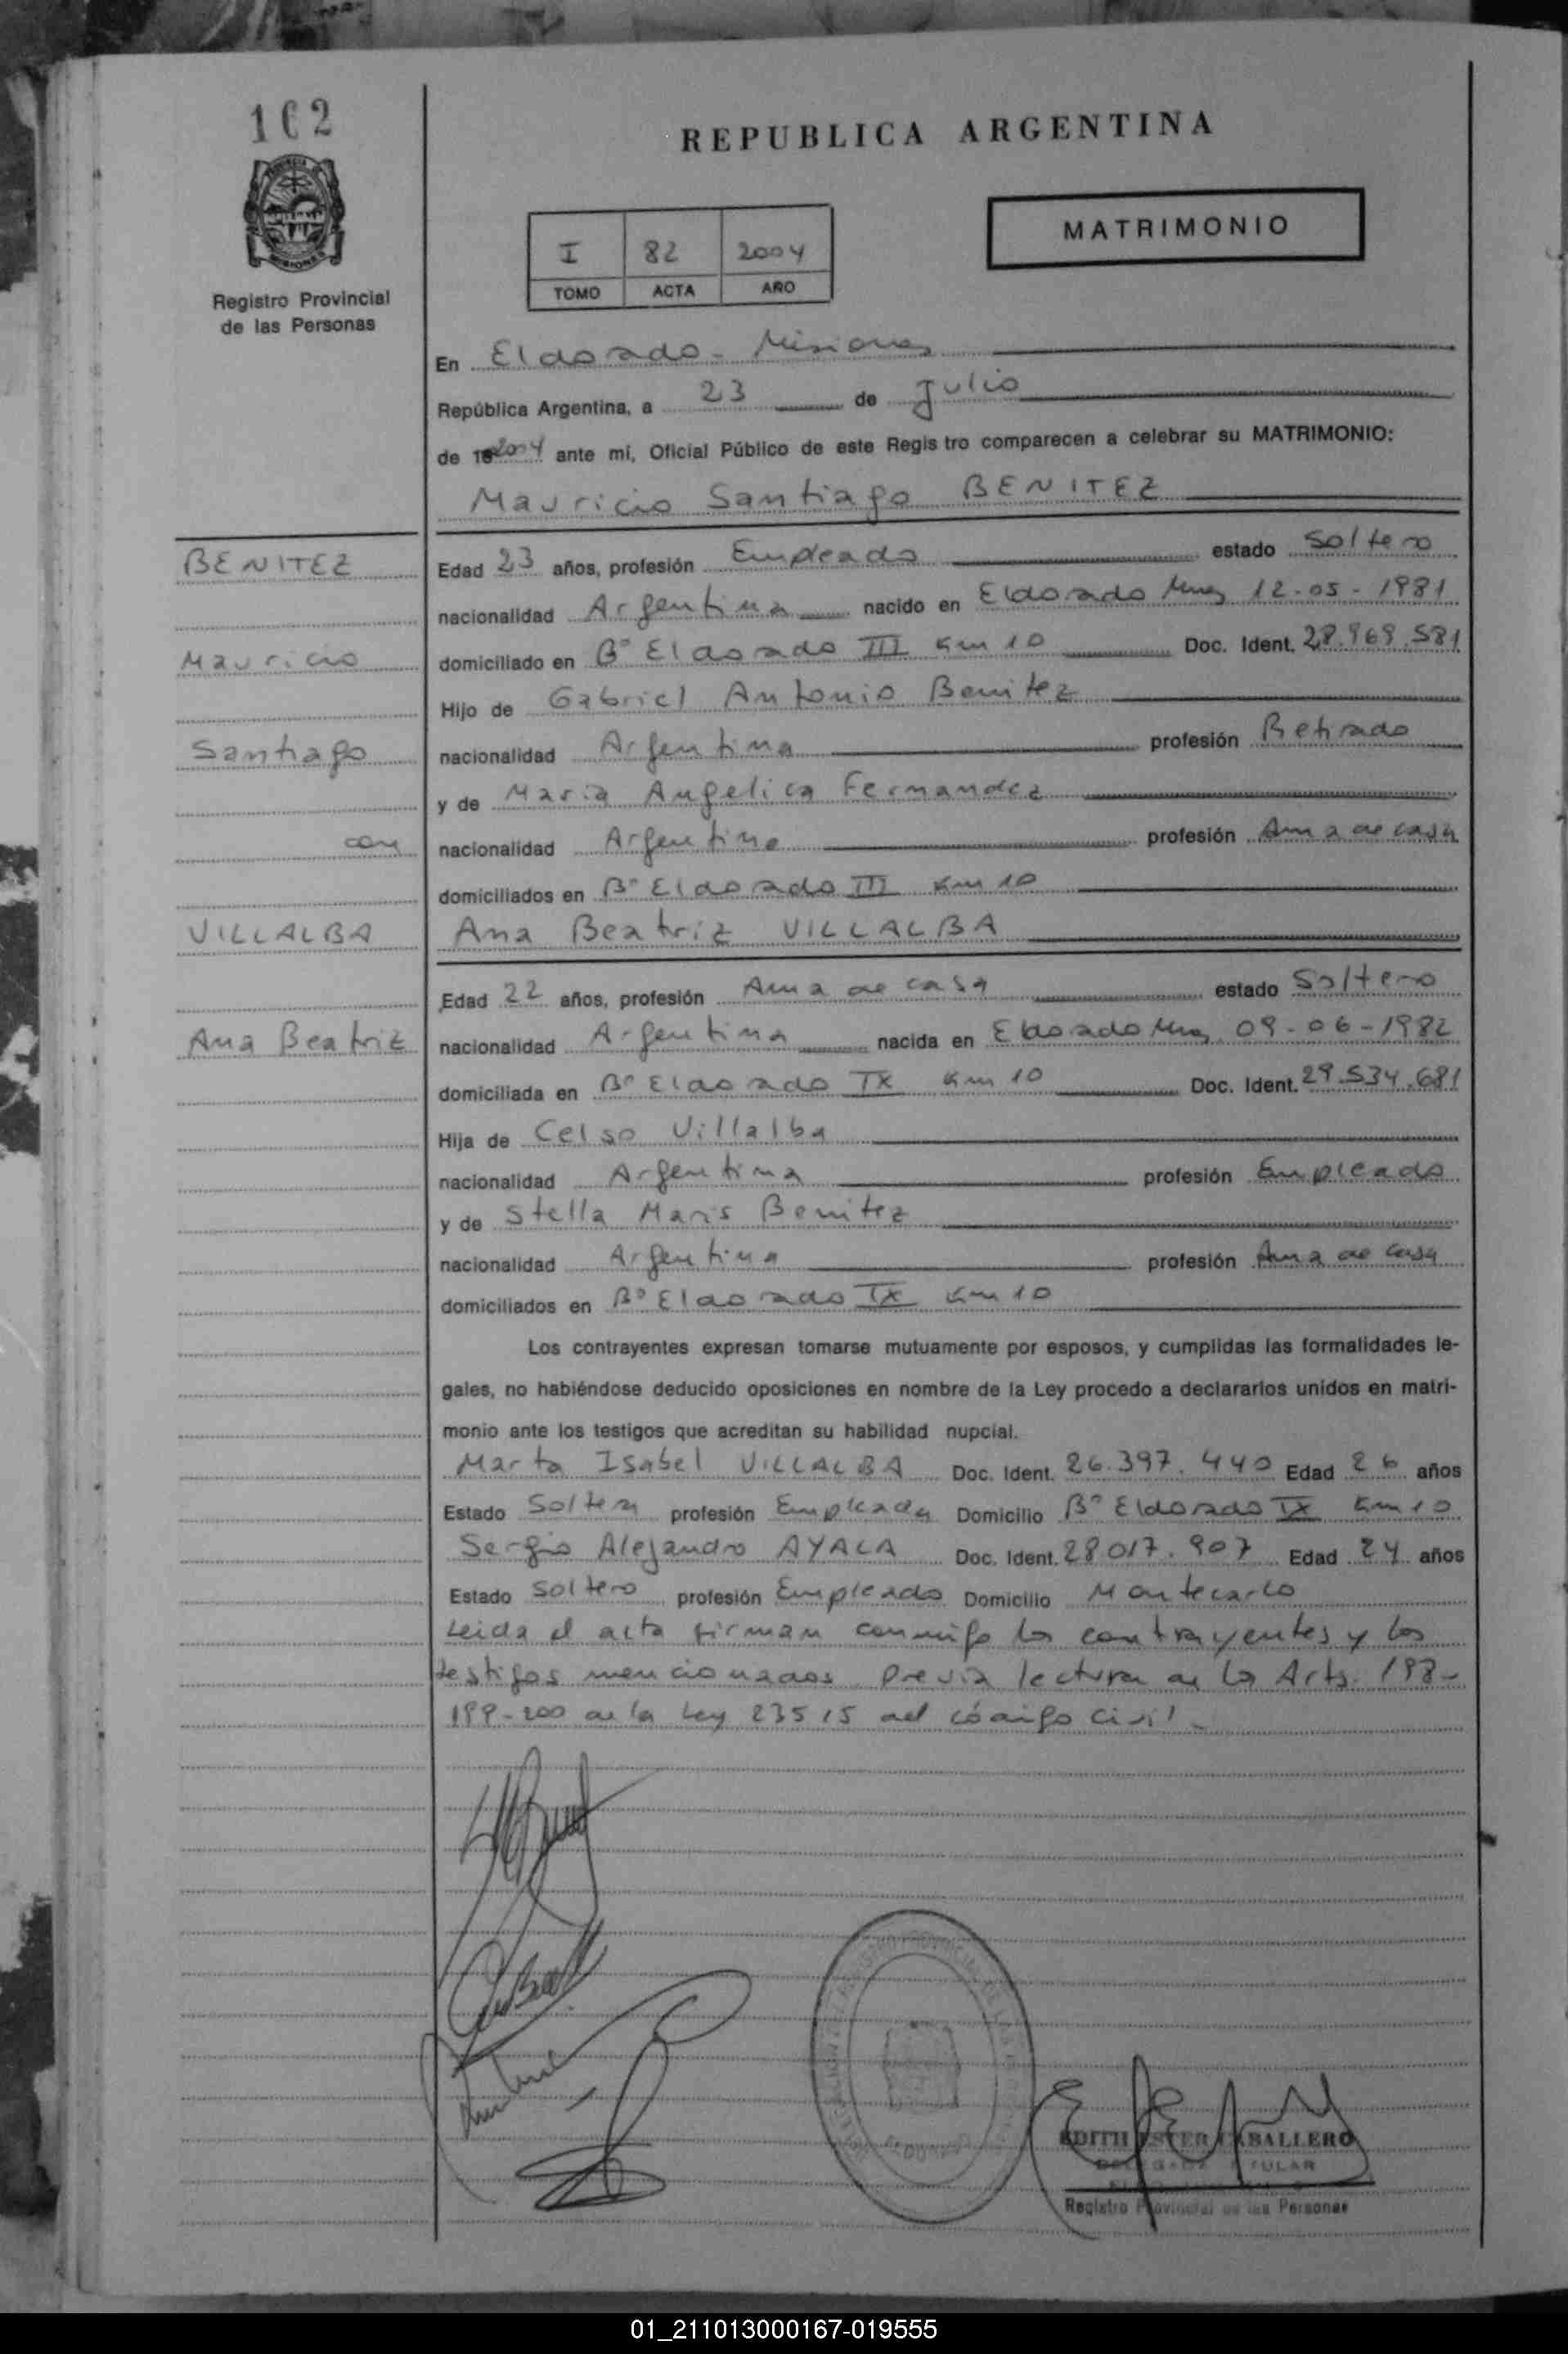 162
REPUBLICA ARGENTINA
MATRIMONIO
I 82 2004
TOMO ACTA AÑO
Registro Provincial
de las Personas
En Eldorado - Misiones
República Argentina, a 23 de Julio
de 2004 ante mí, Oficial Público de este Registro comparecen a celebrar su MATRIMONIO:
Mauricio Santiago BENITEZ
BENITEZ
Mauricio
Santiago
con
VILLALBA
Ana Beatriz
Edad 23 años, profesión Empleado estado Soltero
nacionalidad Argentina nacido en Eldorado Mnes 12-05-1981
domiciliado en B° Eldorado III Km 10 Doc. Ident. 28.969.581
Hijo de Gabriel Antonio Benitez
nacionalidad Argentina profesión Retirado
y de Maria Angelica Fernandez
nacionalidad Argentina profesión Ama de casa
domiciliados en B° Eldorado III Km 10
Ana Beatriz VILLALBA
Edad 22 años, profesión Ama de casa estado Soltero
nacionalidad Argentina nacida en Eldorado Mnes 09-06-1982
domiciliada en B° Eldorado IX Km 10 Doc. Ident. 29.534.681
Hija de Celso Villalba
nacionalidad Argentina profesión Empleado
y de Stella Maris Benitez
nacionalidad Argentina profesión Ama de casa
domiciliados en B° Eldorado IX Km 10
Los contrayentes expresan tomarse mutuamente por esposos, y cumplidas las formalidades le-
gales, no habiéndose deducido oposiciones en nombre de la Ley procedo a declararlos unidos en matri-
monio ante los testigos que acreditan su habilidad nupcial.
Marta Isabel VILLALBA Doc. Ident. 26.397.440 Edad 26 años
Estado Soltera profesión Empleada Domicilio B° Eldorado IX Km 10
Sergio Alejandro AYALA Doc. Ident. 28017.907 Edad 24 años
Estado Soltero profesión Empleado Domicilio Montecarlo
Leida el acta firman conmigo los contrayentes y los
testigos mencionados previa lectura de los Arts. 198-
199-200 de la Ley 23515 del código civil.
EDITH ESTER CABALLERO
DELEGADA TITULAR
Registro Provincial de las Personas
01_211013000167-019555